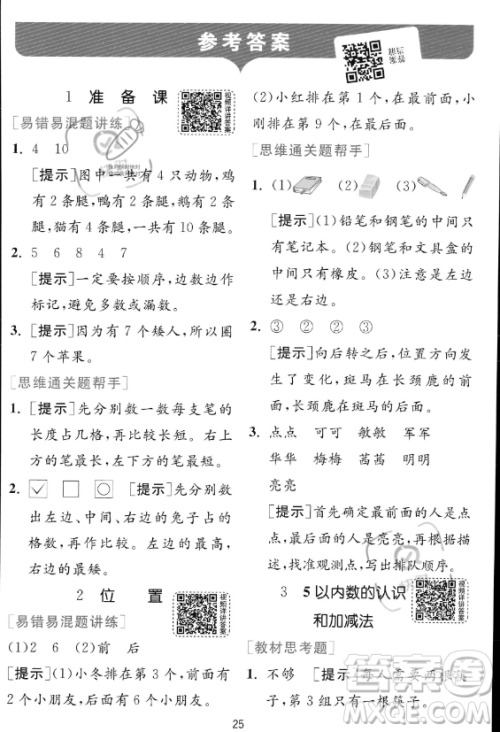 参考答案
1 准备课
[易错易混题讲练]
1. 4 10
[提示]图中一共有4只动物,鸡
有2条腿,鸭有2条腿,鹅有2条
腿,猫有4条腿,一共有10条腿。
2. 5 6 8 4 7
[提示]一定要按顺序,边数边作
标记,避免多数或漏数。
3. [提示]因为有7个矮人,所以圈
7个苹果。
[思维通关题帮手]
1. [提示]先分别数一数每支笔的
长度占几格,再比一比。右上方
的笔最长,左下方的笔最短。
2. [提示]先分别数
出左边、中间、右边的兔子占了几
格,再比一比。左边的最高,
右边的最矮。
2 位置
[易错易混题讲练]
(1)2 6 (2)前 后
[提示](1)小冬排在第3个,前面有
2个小朋友,后面有6个小朋友。
(2)小红排在第1个,在最前面,小
刚排在第9个,在最后面。
[思维通关题帮手]
1. (1) (2) (3)
[提示](1)铅笔和钢笔的中间只
有笔记本。(2)钢笔和文具盒的
中间只有橡皮。(3)注意是左边
还是右边。
2. ③ ② ② ③
[提示]方向变了,前后位置也发
生了变化,斑马在长颈鹿的前面,
长颈鹿在斑马的后面。
3. 点点 可可 敏敏 军军
华华 梅梅 茜茜 明明
亮亮
[提示]首先确定最前面的人是点
点,最后的人是亮亮,再根据信
息,找准观测点,与排队顺序。
3 5以内数的认识
和加减法
[教材思考题]
1. 不够 [提示]每人需要两根筷
子,第3组只有一根筷子。
25
视频讲解答案
视频详讲答案
答案圈